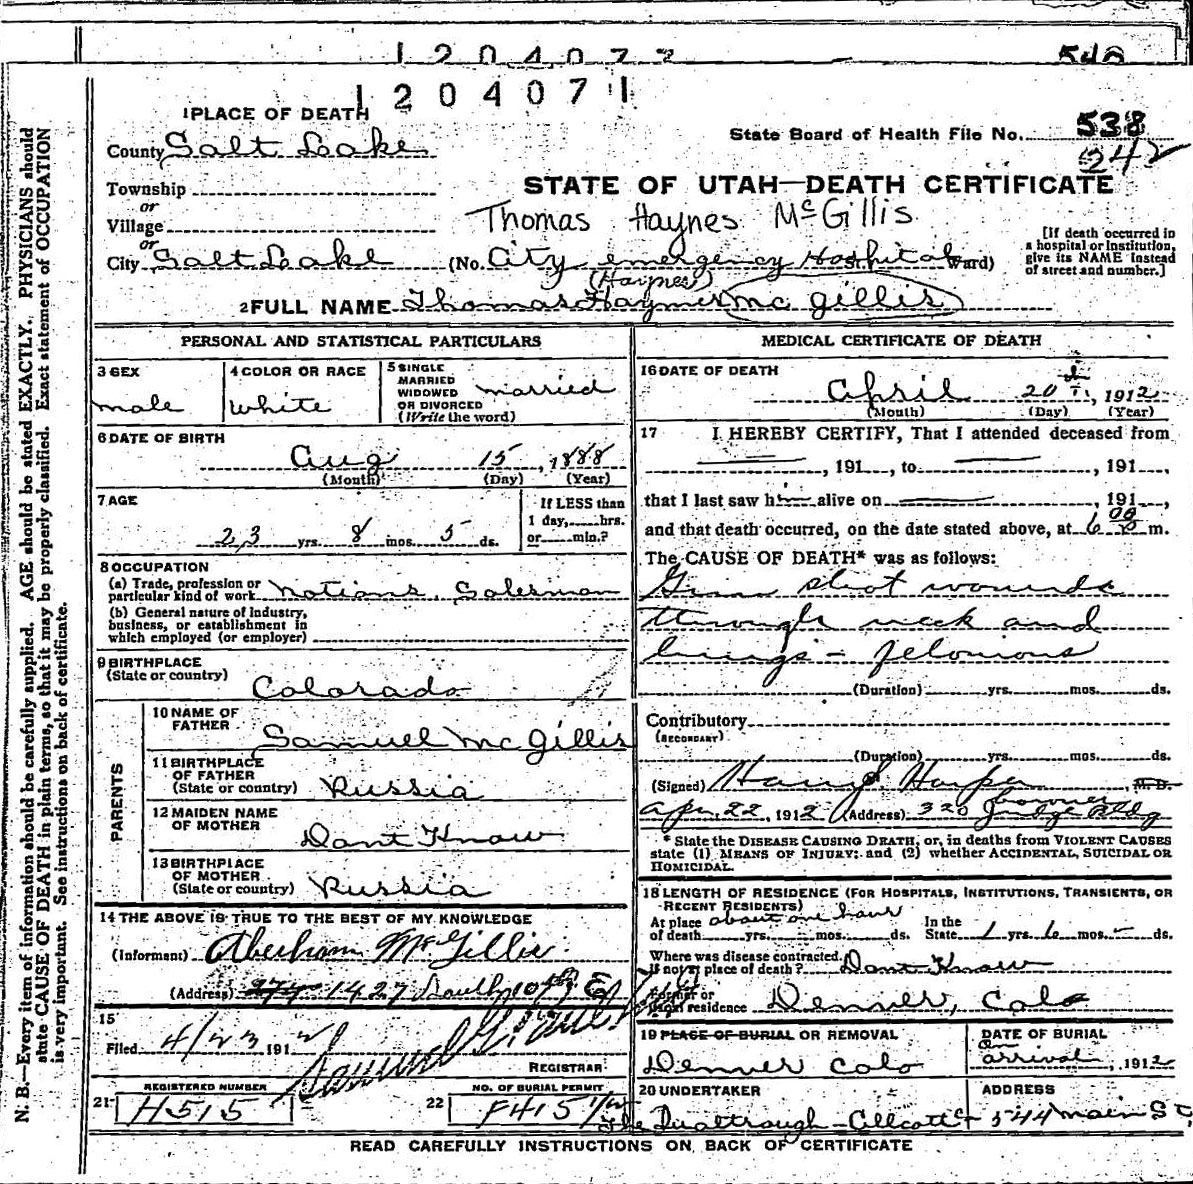 1 2 0 4 0 7
540
1 2 0 4 0 7 1
1 PLACE OF DEATH
County Salt Lake
Township
or
Village
or
City Salt Lake (No. City emergency Hospital St. Ward)
State Board of Health File No. 538
242
STATE OF UTAH—DEATH CERTIFICATE
Thomas Haynes McGillis
[If death occurred in
a hospital or institution,
give its NAME instead
of street and number.]
(Haynes)
2 FULL NAME Thomas Haymes Mc Gillis
PERSONAL AND STATISTICAL PARTICULARS
3 SEX
male
4 COLOR OR RACE
White
5 SINGLE
MARRIED
WIDOWED
OR DIVORCED
(Write the word)
married
6 DATE OF BIRTH
Aug 15, 1888
(Month) (Day) (Year)
7 AGE
23 yrs. 8 mos. 5 ds.
If LESS than
1 day, hrs.
or min.?
8 OCCUPATION
(a) Trade, profession or
particular kind of work notions, Salesman
(b) General nature of industry,
business, or establishment in
which employed (or employer)
9 BIRTHPLACE
(State or country)
Colorado
PARENTS
10 NAME OF
FATHER
Samuel McGillis
11 BIRTHPLACE
OF FATHER
(State or country) Russia
12 MAIDEN NAME
OF MOTHER
Dont Know
13 BIRTHPLACE
OF MOTHER
(State or country) Russia
14 THE ABOVE IS TRUE TO THE BEST OF MY KNOWLEDGE
(Informant) Aberham McGillis
(Address) 274 1427 South 10th E
15
Filed 4/23 1912
REGISTRAR
REGISTERED NUMBER
21 H515
NO. OF BURIAL PERMIT
22 F415
MEDICAL CERTIFICATE OF DEATH
16 DATE OF DEATH
April 20th, 1912
(Month) (Day) (Year)
17 I HEREBY CERTIFY, That I attended deceased from
, 191 , to , 191 ,
that I last saw h alive on , 191 ,
and that death occurred, on the date stated above, at 6 00 m.
The CAUSE OF DEATH* was as follows:
Gun shot wounds
through neck and
lungs - felonious
(Duration) yrs. mos. ds.
Contributory
(SECONDARY)
(Duration) yrs. mos. ds.
(Signed) Harry Harper M. D.
Coroner
Apr. 22, 1912 (Address) 320 Judge Bldg
* State the DISEASE CAUSING DEATH, or, in deaths from VIOLENT CAUSES
state (1) MEANS OF INJURY; and (2) whether ACCIDENTAL, SUICIDAL OR
HOMICIDAL.
18 LENGTH OF RESIDENCE (FOR HOSPITALS, INSTITUTIONS, TRANSIENTS, OR
RECENT RESIDENTS)
At place about one hour In the
of death yrs. mos. ds. State 1 yrs. 6 mos. - ds.
Where was disease contracted,
if not at place of death? Dont Know
Former or
usual residence Denver, Colo
19 PLACE OF BURIAL OR REMOVAL
Denver Colo
DATE OF BURIAL
On
arrival, 1912
20 UNDERTAKER
ADDRESS
544 Main St
READ CAREFULLY INSTRUCTIONS ON BACK OF CERTIFICATE
N. B.—Every item of information should be carefully supplied. AGE should be stated EXACTLY. PHYSICIANS should
state CAUSE OF DEATH in plain terms, so that it may be properly classified. Exact statement of OCCUPATION
is very important. See instructions on back of certificate.